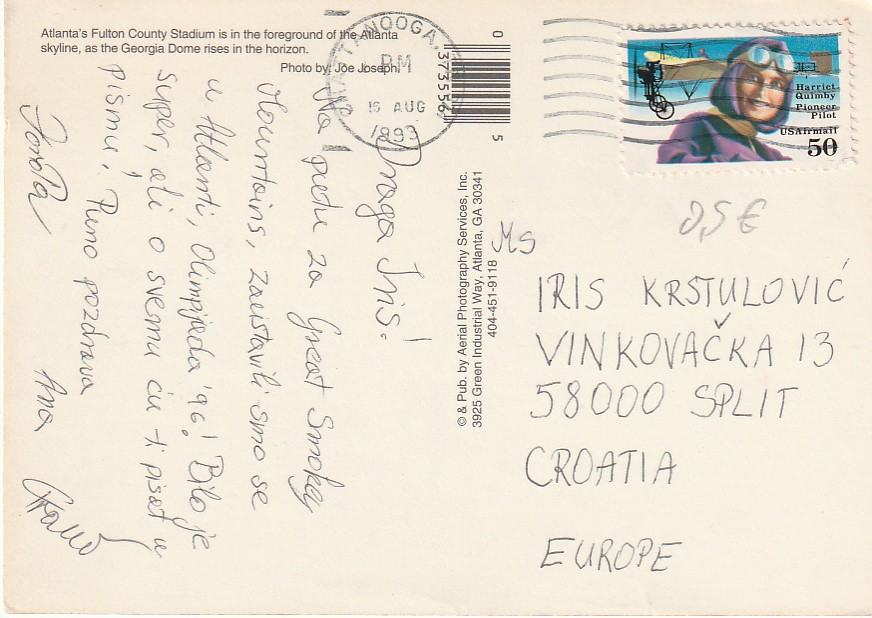 Atlanta's Fulton County Stadium is in the foreground of the Atlanta
skyline, as the Georgia Dome rises in the horizon.
Photo by: Joe Joseph
CHATTANOOGA,
PM
16 AUG
1993
0
373556
5
Harriet
Quimby
Pioneer
Pilot
USAirmail
50
0,5 €
Draga Iris!
Na putu za Great Smokey
Mountains, zaustavili smo se
u Atlanti, Olimpijada '96! Bilo je
super, ali o svemu ću ti pisat u
pismu, Puno pozdrava
Ana
© & Pub. by Aerial Photography Services, Inc.
3925 Green Industrial Way, Atlanta, GA 30341
404-451-9118
MS
IRIS KRSTULOVIĆ
VINKOVAČKA 13
58000 SPLIT
CROATIA
EUROPE